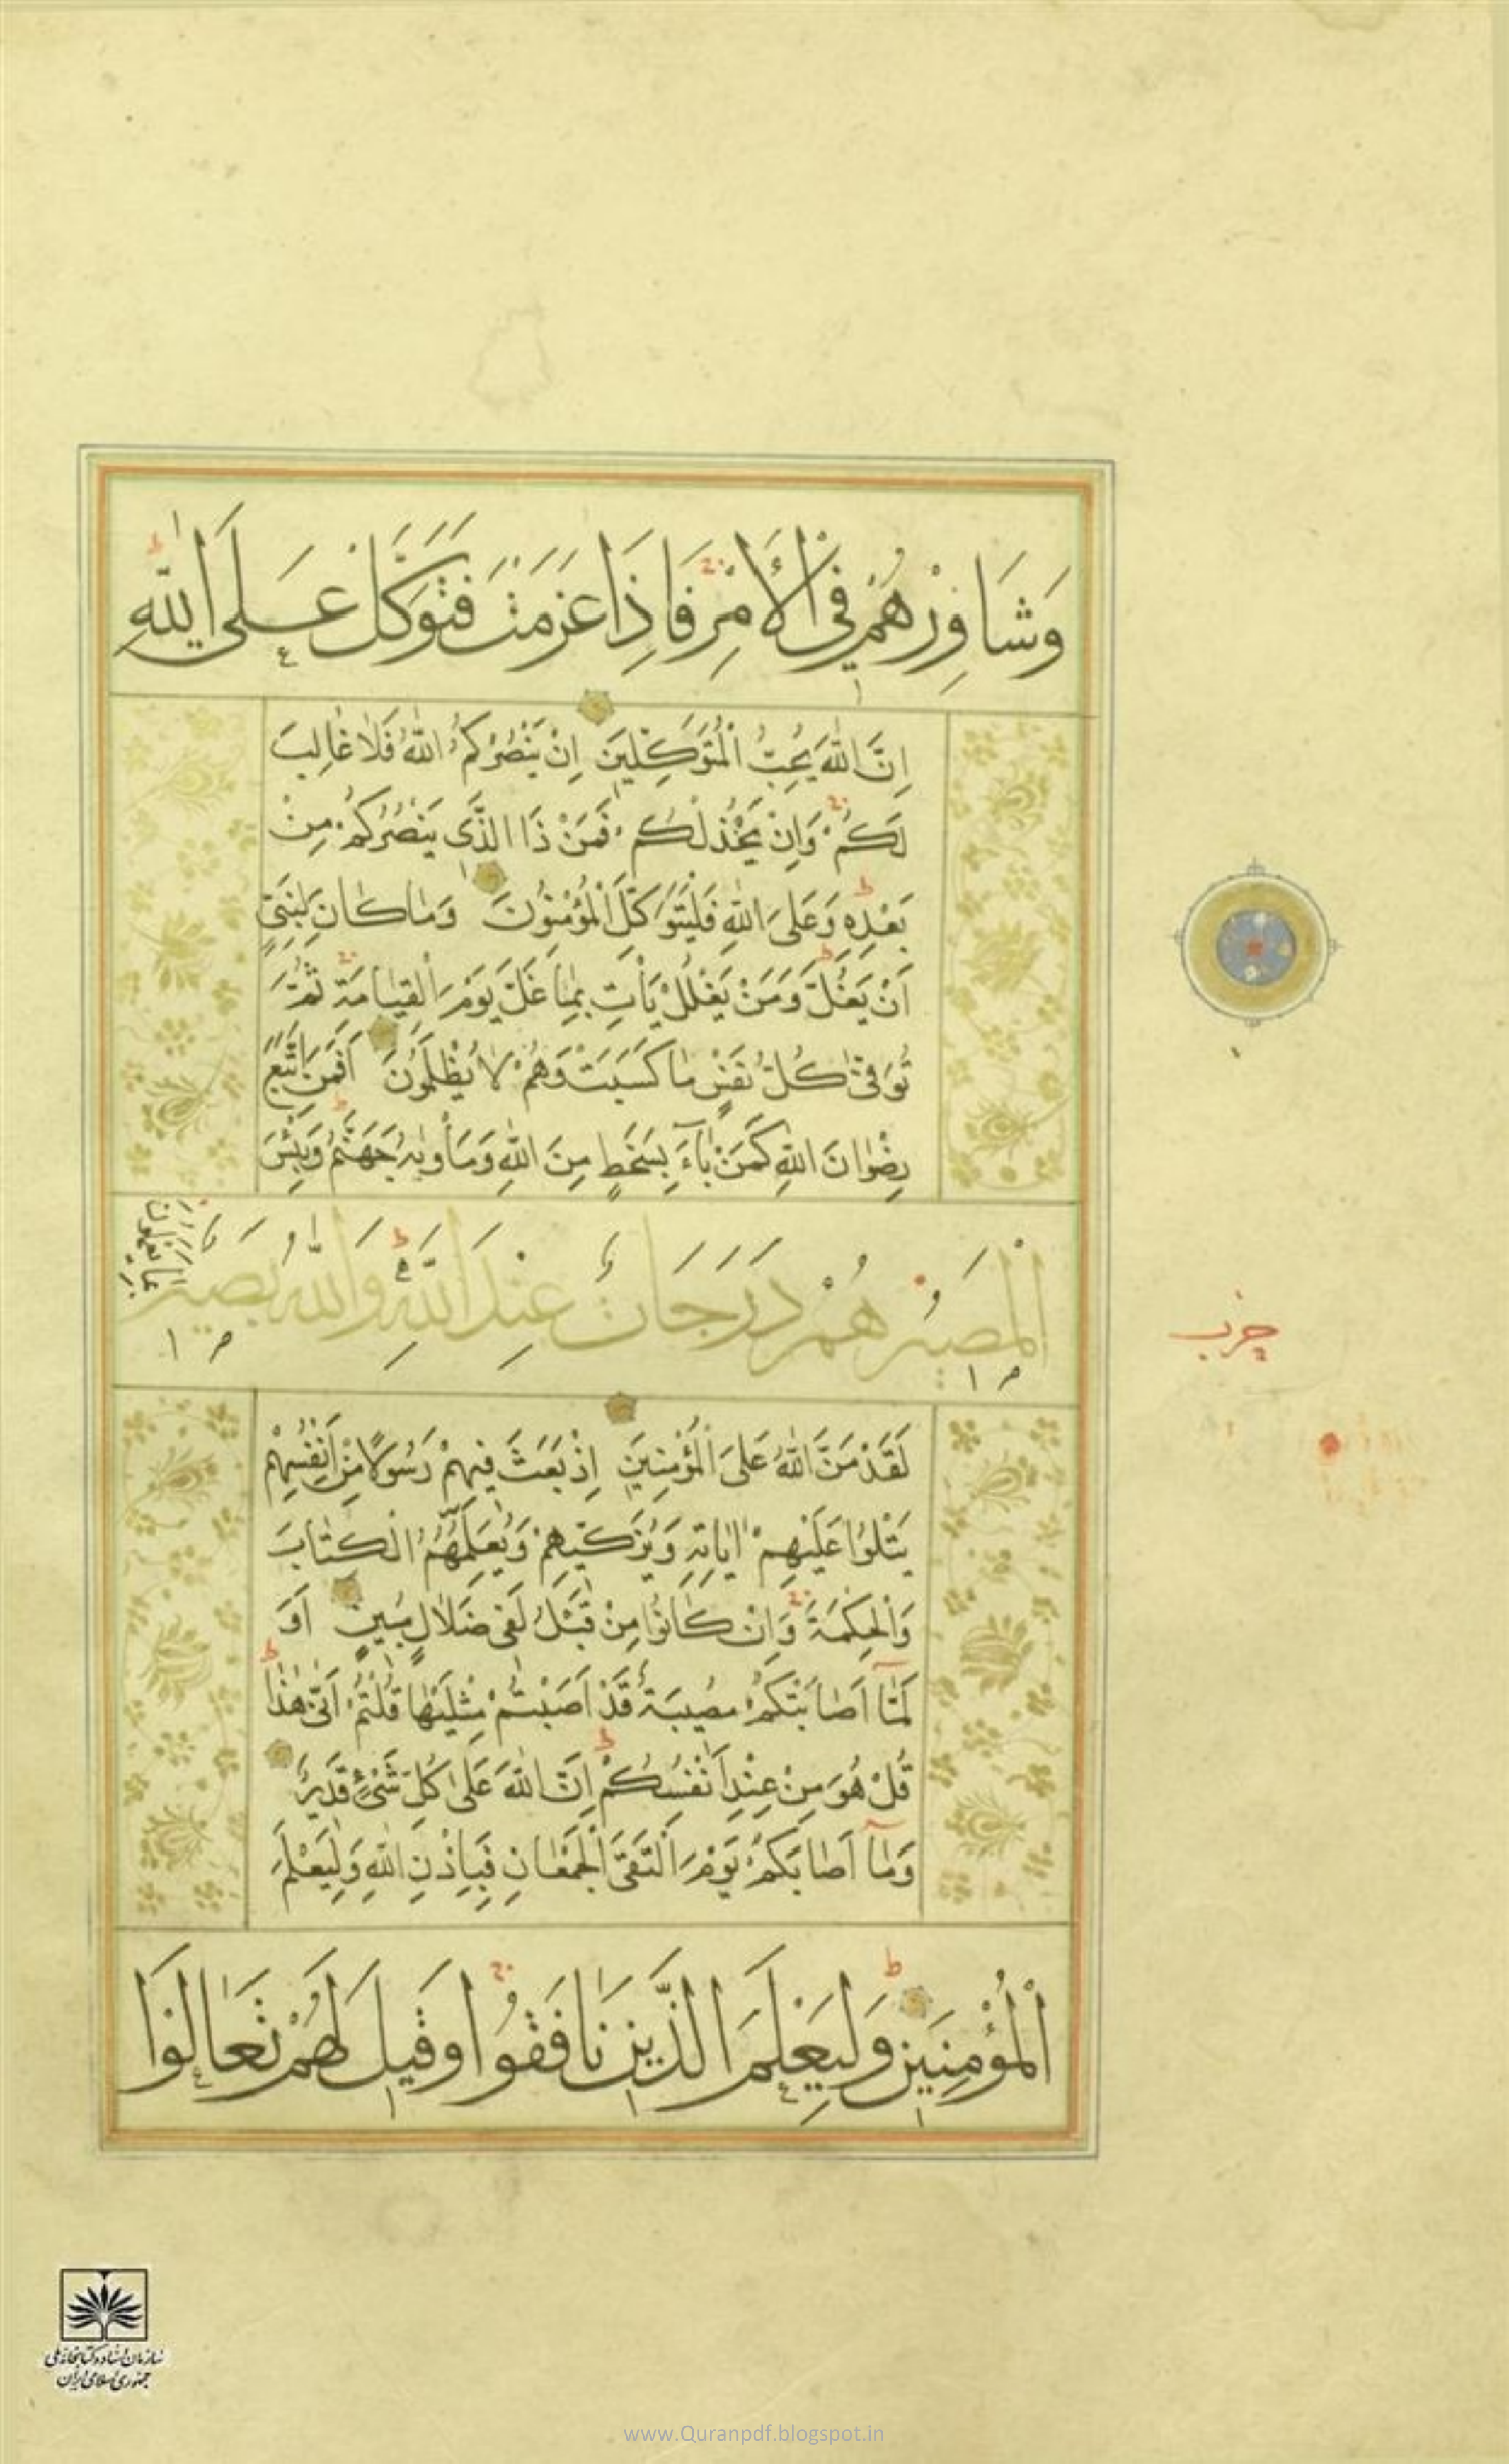 وَشَاوِرْهُمْ فِي الْأَمْرِ فَإِذَا عَزَمْتَ فَتَوَكَّلْ عَلَى اللَّهِ
اِنَّ اللّٰهَ يُحِبُّ الْمُتَوَكِّلِينَ اِنْ يَنْصُرْكُمُ اللّٰهُ فَلَا غَالِبَ
لَكُمْ وَاِنْ يَخْذُلْكُمْ فَمَنْ ذَا الَّذِي يَنْصُرُكُمْ مِنْ
بَعْدِهِ وَعَلَى اللّٰهِ فَلْيَتَوَكَّلِ الْمُؤْمِنُونَ وَمَا كَانَ لِنَبِيٍّ
اَنْ يَغُلَّ وَمَنْ يَغْلُلْ يَأْتِ بِمَا غَلَّ يَوْمَ الْقِيَامَةِ ثُمَّ
تُوَفّٰى كُلُّ نَفْسٍ مَا كَسَبَتْ وَهُمْ لَا يُظْلَمُونَ اَفَمَنِ اتَّبَعَ
رِضْوَانَ اللّٰهِ كَمَنْ بَآءَ بِسَخَطٍ مِنَ اللّٰهِ وَمَأْوٰيهُ جَهَنَّمُ وَبِئْسَ
الْمَصِيرُ هُمْ دَرَجَاتٌ عِنْدَ اللّٰهِ وَاللّٰهُ بَصِيرٌ
بِمَا يَعْمَلُونَ
حزب
لَقَدْ مَنَّ اللّٰهُ عَلَى الْمُؤْمِنِينَ اِذْ بَعَثَ فِيهِمْ رَسُولًا مِنْ اَنْفُسِهِمْ
يَتْلُوا عَلَيْهِمْ اٰيَاتِهِ وَيُزَكِّيهِمْ وَيُعَلِّمُهُمُ الْكِتَابَ
وَالْحِكْمَةَ وَاِنْ كَانُوا مِنْ قَبْلُ لَفِي ضَلَالٍ مُبِينٍ اَوَ
لَمَّا اَصَابَتْكُمْ مُصِيبَةٌ قَدْ اَصَبْتُمْ مِثْلَيْهَا قُلْتُمْ اَنّٰى هٰذَا
قُلْ هُوَ مِنْ عِنْدِ اَنْفُسِكُمْ اِنَّ اللّٰهَ عَلٰى كُلِّ شَيْءٍ قَدِيرٌ
وَمَآ اَصَابَكُمْ يَوْمَ الْتَقَى الْجَمْعَانِ فَبِاِذْنِ اللّٰهِ وَلِيَعْلَمَ
الْمُؤْمِنِينَ وَلِيَعْلَمَ الَّذِينَ نَافَقُوا وَقِيلَ لَهُمْ تَعَالَوْا
سازمان اسناد و کتابخانه ملی
جمهوری اسلامی ایران
www.Quranpdf.blogspot.in